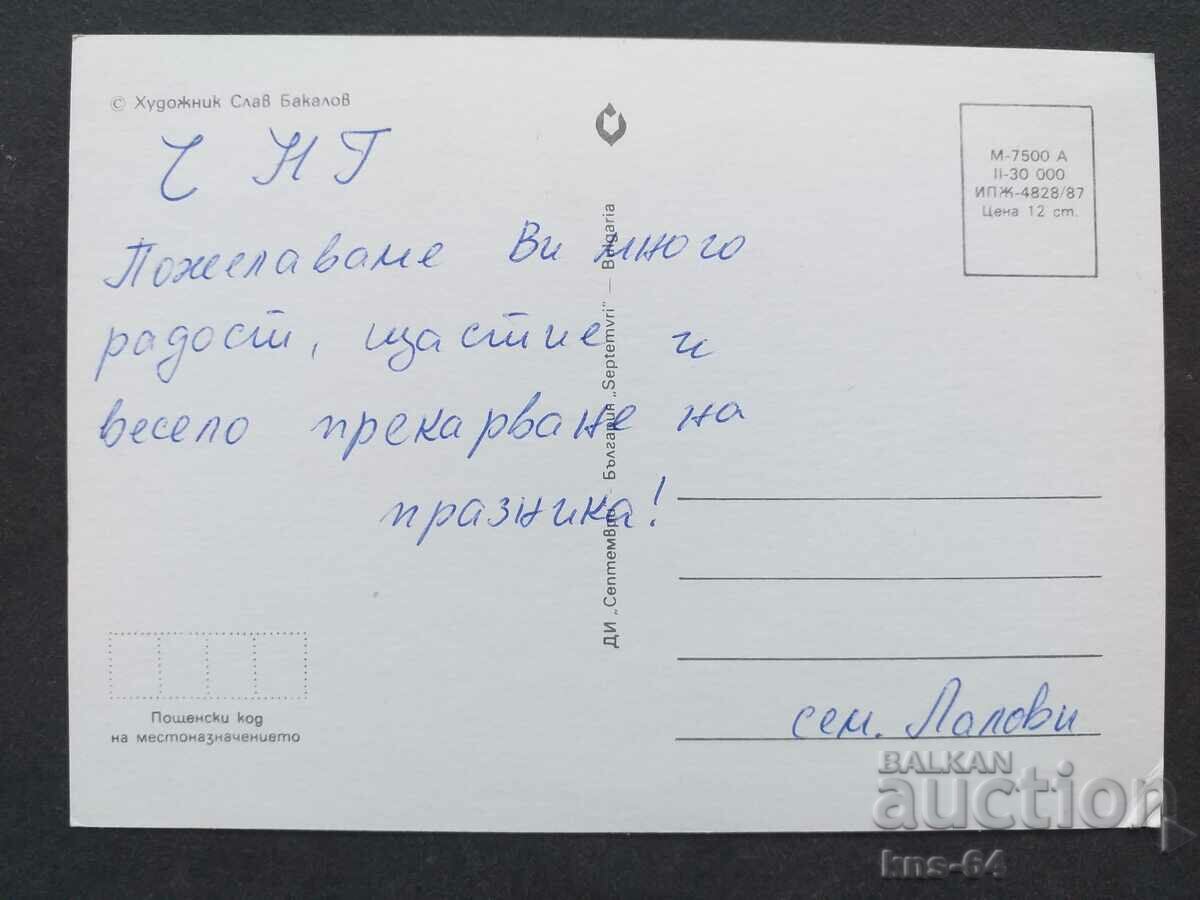 © Художник Слав Бакалов
Ч Н Г
Пожелаваме Ви много
радост, щастие и
весело прекарване на
празника!
Пощенски код
на местоназначението
ДИ „Септември“ — България „Septemvri“ — Bulgaria
М-7500 А
II-30 000
ИПЖ-4828/87
Цена 12 ст.
сем. Лалови
BALKAN
auction
kns-64